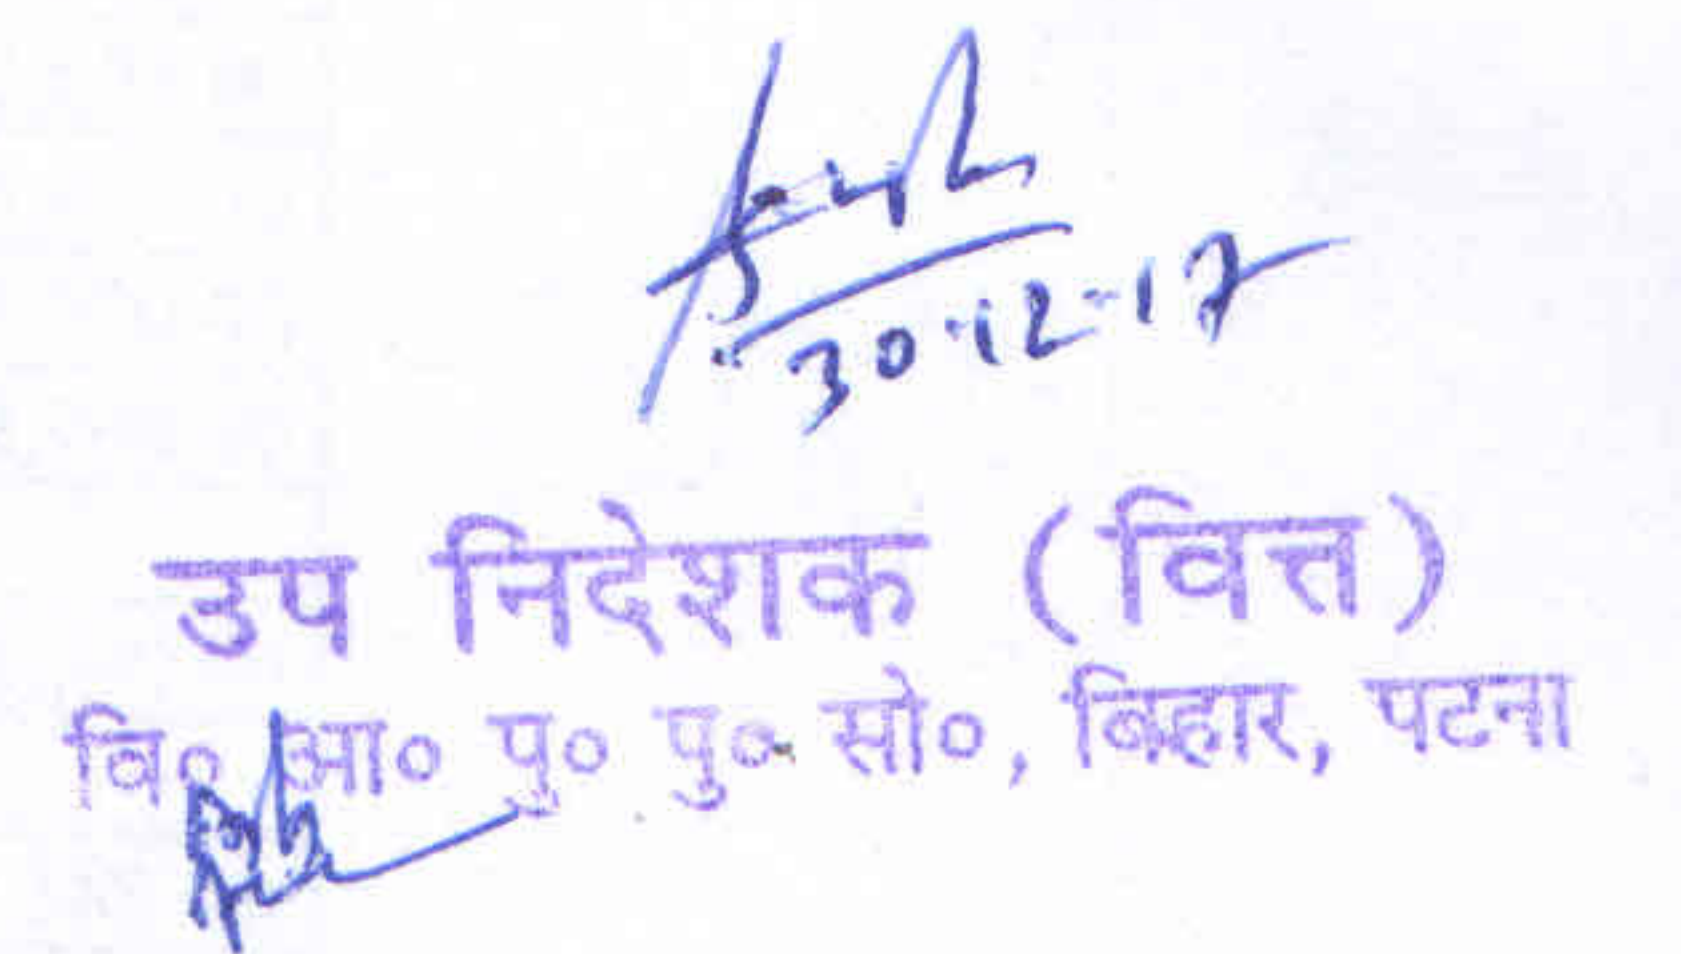 30-12-17
उप निदेशक (वित्त)
वि० आ० पु० पु० सो०, बिहार, पटना